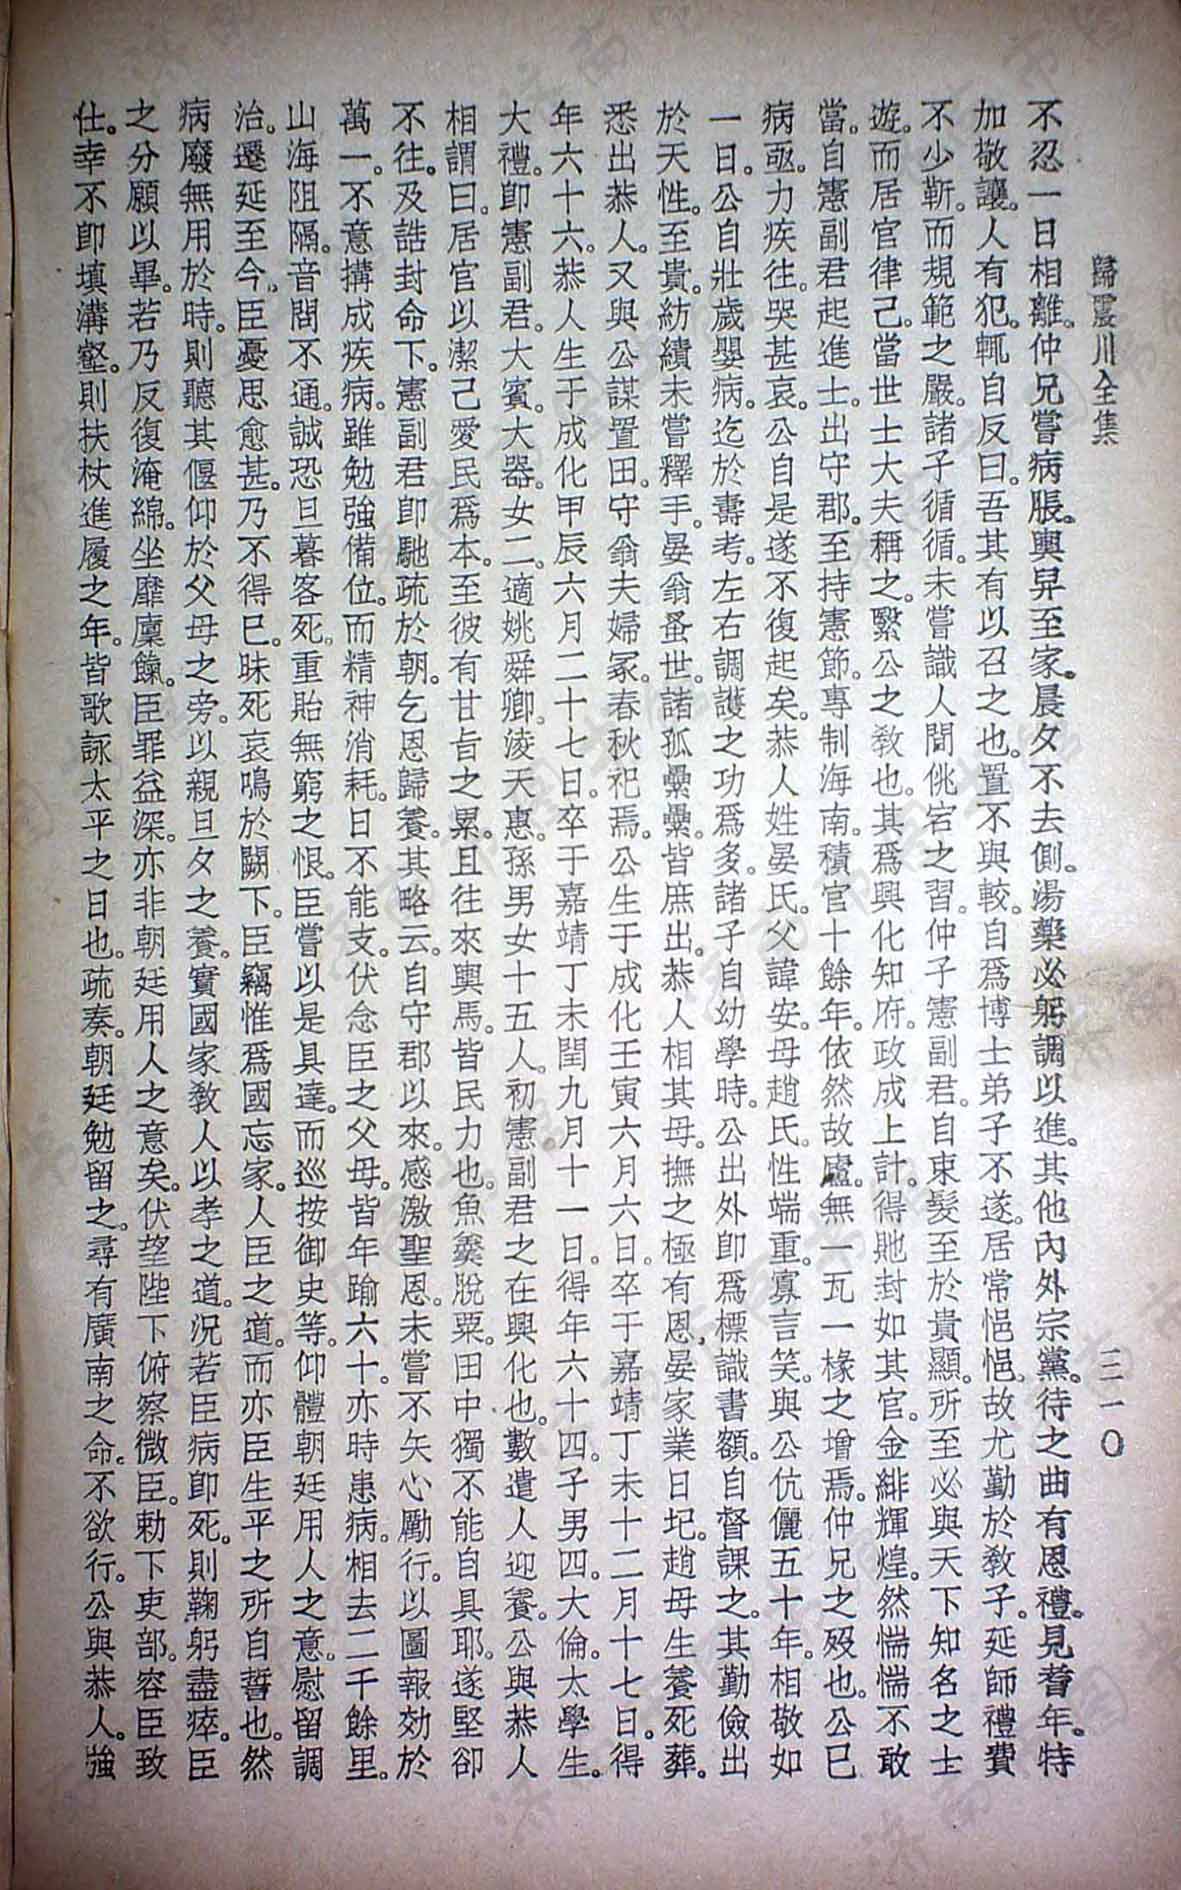 歸震川全集
三一〇
不忍一日相離。仲兄嘗病脹。輿舁至家。晨夕不去側。湯藥必躬調以進。其他內外宗黨。待之曲有恩禮。見耆年。特
加敬讓。人有犯。輒自反曰。吾其有以召之也。置不與較。自爲博士弟子不遂。居常悒悒。故尤勤於敎子。延師禮費
不少靳。而規範之嚴。諸子循循。未嘗識人間佻宕之習。仲子憲副君。自束髮至於貴顯。所至必與天下知名之士
遊。而居官律己。當世士大夫稱之。繄公之敎也。其爲興化知府。政成上計。得貤封如其官。金緋輝煌。然惴惴不敢
當。自憲副君起進士。出守郡。至持憲節。專制海南。積官十餘年。依然故廬。無一瓦一椽之增焉。仲兄之歿也。公已
病亟。力疾往。哭甚哀。公自是遂不復起矣。恭人姓晏氏。父諱安。母趙氏。性端重。寡言笑。與公伉儷五十年。相敬如
一日。公自壯歲嬰病。迄於壽考。左右調護之功爲多。諸子自幼學時。公出外卽爲標識書額。自督課之。其勤儉出
於天性。至貴。紡績未嘗釋手。晏翁蚤世。諸孤纍纍。皆庶出。恭人相其母。撫之極有恩。晏家業日圮。趙母生養死葬。
悉出恭人。又與公謀置田。守翁夫婦冢。春秋祀焉。公生于成化壬寅六月六日。卒于嘉靖丁未十二月十七日。得
年六十六。恭人生于成化甲辰六月二十七日。卒于嘉靖丁未閏九月十一日。得年六十四。子男四。大倫。太學生。
大禮。卽憲副君。大賓。大器。女二。適姚舜卿。淩天惠。孫男女十五人。初憲副君之在興化也。數遣人迎養。公與恭人
相謂曰。居官以潔己愛民爲本。至彼有甘旨之累。且往來輿馬。皆民力也。魚羹脫粟。田中獨不能自具耶。遂堅卻
不往。及誥封命下。憲副君卽馳疏於朝。乞恩歸養。其略云。自守郡以來。感激聖恩。未嘗不矢心勵行。以圖報効於
萬一。不意搆成疾病。雖勉強備位。而精神消耗。日不能支。伏念臣之父母。皆年踰六十。亦時患病。相去二千餘里。
山海阻隔。音問不通。誠恐旦暮客死。重貽無窮之恨。臣嘗以是具達。而巡按御史等。仰體朝廷用人之意。慰留調
治。遷延至今。臣憂思愈甚。乃不得已。昧死哀鳴於闕下。臣竊惟爲國忘家。人臣之道。而亦臣生平之所自誓也。然
病廢無用於時。則聽其偃仰於父母之旁。以親旦夕之養。實國家敎人以孝之道。況若臣病卽死。則鞠躬盡瘁。臣
之分願以畢。若乃反復淹綿。坐靡廩餼。臣罪益深。亦非朝廷用人之意矣。伏望陛下俯察微臣。勅下吏部。容臣致
仕。幸不卽填溝壑。則扶杖進履之年。皆歌詠太平之日也。疏奏。朝廷勉留之。尋有廣南之命。不欲行。公與恭人。強